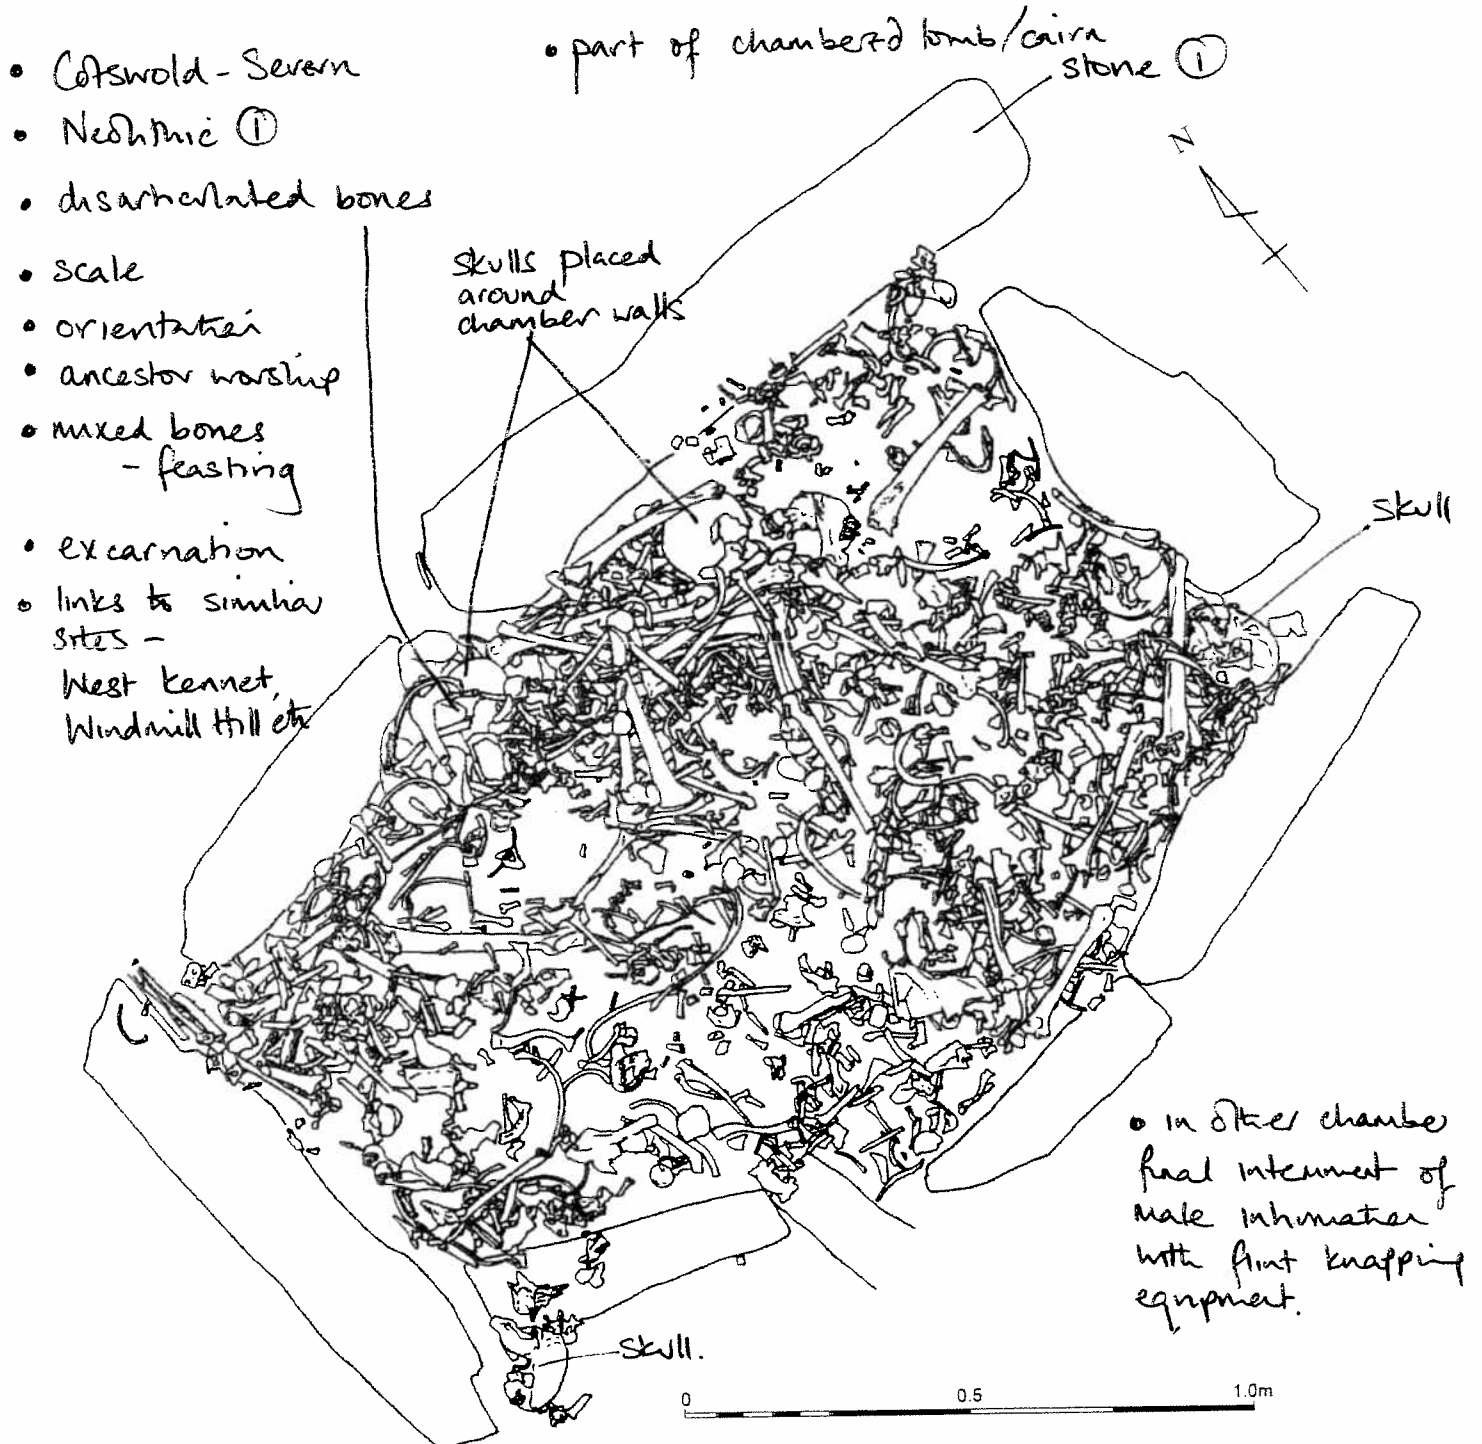 • Cotswold - Severn
• Neolithic ①
• disarticulated bones
• scale
• orientation
• ancestor worship
• mixed bones
- feasting
• excarnation
• links to similar
sites -
West Kennet,
Windmill Hill etc
• part of chambered tomb/cairn
stone ①
N
skulls placed
around
chamber walls
skull
• in other chamber
final internment of
male inhumation
with flint knapping
equipment.
skull.
0 0.5 1.0m